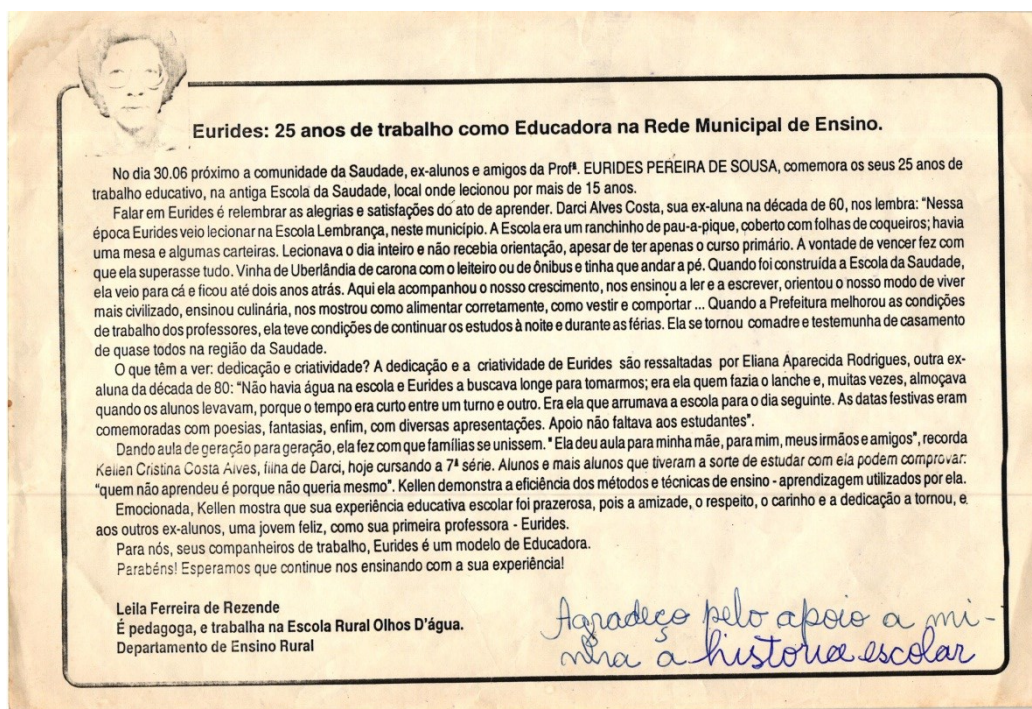 Eurides: 25 anos de trabalho como Educadora na Rede Municipal de Ensino.
No dia 30.06 próximo a comunidade da Saudade, ex-alunos e amigos da Profª. EURIDES PEREIRA DE SOUSA, comemora os seus 25 anos de
trabalho educativo, na antiga Escola da Saudade, local onde lecionou por mais de 15 anos.
Falar em Eurides é relembrar as alegrias e satisfações do ato de aprender. Darci Alves Costa, sua ex-aluna na década de 60, nos lembra: "Nessa
época Eurides veio lecionar na Escola Lembrança, neste município. A Escola era um ranchinho de pau-a-pique, coberto com folhas de coqueiros; havia
uma mesa e algumas carteiras. Lecionava o dia inteiro e não recebia orientação, apesar de ter apenas o curso primário. A vontade de vencer fez com
que ela superasse tudo. Vinha de Uberlândia de carona com o leiteiro ou de ônibus e tinha que andar a pé. Quando foi construída a Escola da Saudade,
ela veio para cá e ficou até dois anos atrás. Aqui ela acompanhou o nosso crescimento, nos ensinou a ler e a escrever, orientou o nosso modo de viver
mais civilizado, ensinou culinária, nos mostrou como alimentar corretamente, como vestir e comportar ... Quando a Prefeitura melhorou as condições
de trabalho dos professores, ela teve condições de continuar os estudos à noite e durante as férias. Ela se tornou comadre e testemunha de casamento
de quase todos na região da Saudade.
O que têm a ver: dedicação e criatividade? A dedicação e a criatividade de Eurides são ressaltadas por Eliana Aparecida Rodrigues, outra ex-
aluna da década de 80: "Não havia água na escola e Eurides a buscava longe para tomarmos; era ela quem fazia o lanche e, muitas vezes, almoçava
quando os alunos levavam, porque o tempo era curto entre um turno e outro. Era ela que arrumava a escola para o dia seguinte. As datas festivas eram
comemoradas com poesias, fantasias, enfim, com diversas apresentações. Apoio não faltava aos estudantes".
Dando aula de geração para geração, ela fez com que famílias se unissem. "Ela deu aula para minha mãe, para mim, meus irmãos e amigos", recorda
Kellen Cristina Costa Alves, filha de Darci, hoje cursando a 7ª série. Alunos e mais alunos que tiveram a sorte de estudar com ela podem comprovar:
"quem não aprendeu é porque não queria mesmo". Kellen demonstra a eficiência dos métodos e técnicas de ensino - aprendizagem utilizados por ela.
Emocionada, Kellen mostra que sua experiência educativa escolar foi prazerosa, pois a amizade, o respeito, o carinho e a dedicação a tornou, e
aos outros ex-alunos, uma jovem feliz, como sua primeira professora - Eurides.
Para nós, seus companheiros de trabalho, Eurides é um modelo de Educadora.
Parabéns! Esperamos que continue nos ensinando com a sua experiência!
Leila Ferreira de Rezende
É pedagoga, e trabalha na Escola Rural Olhos D'água.
Departamento de Ensino Rural
Agradeço pelo apoio a mi-
nha a história escolar